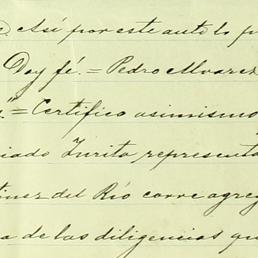 Así por este auto lo
Doy fé. = Pedro Alvarez
" = Certifico asimismo
Zurita, representa
del Río corre agreg
de las diligencias qu